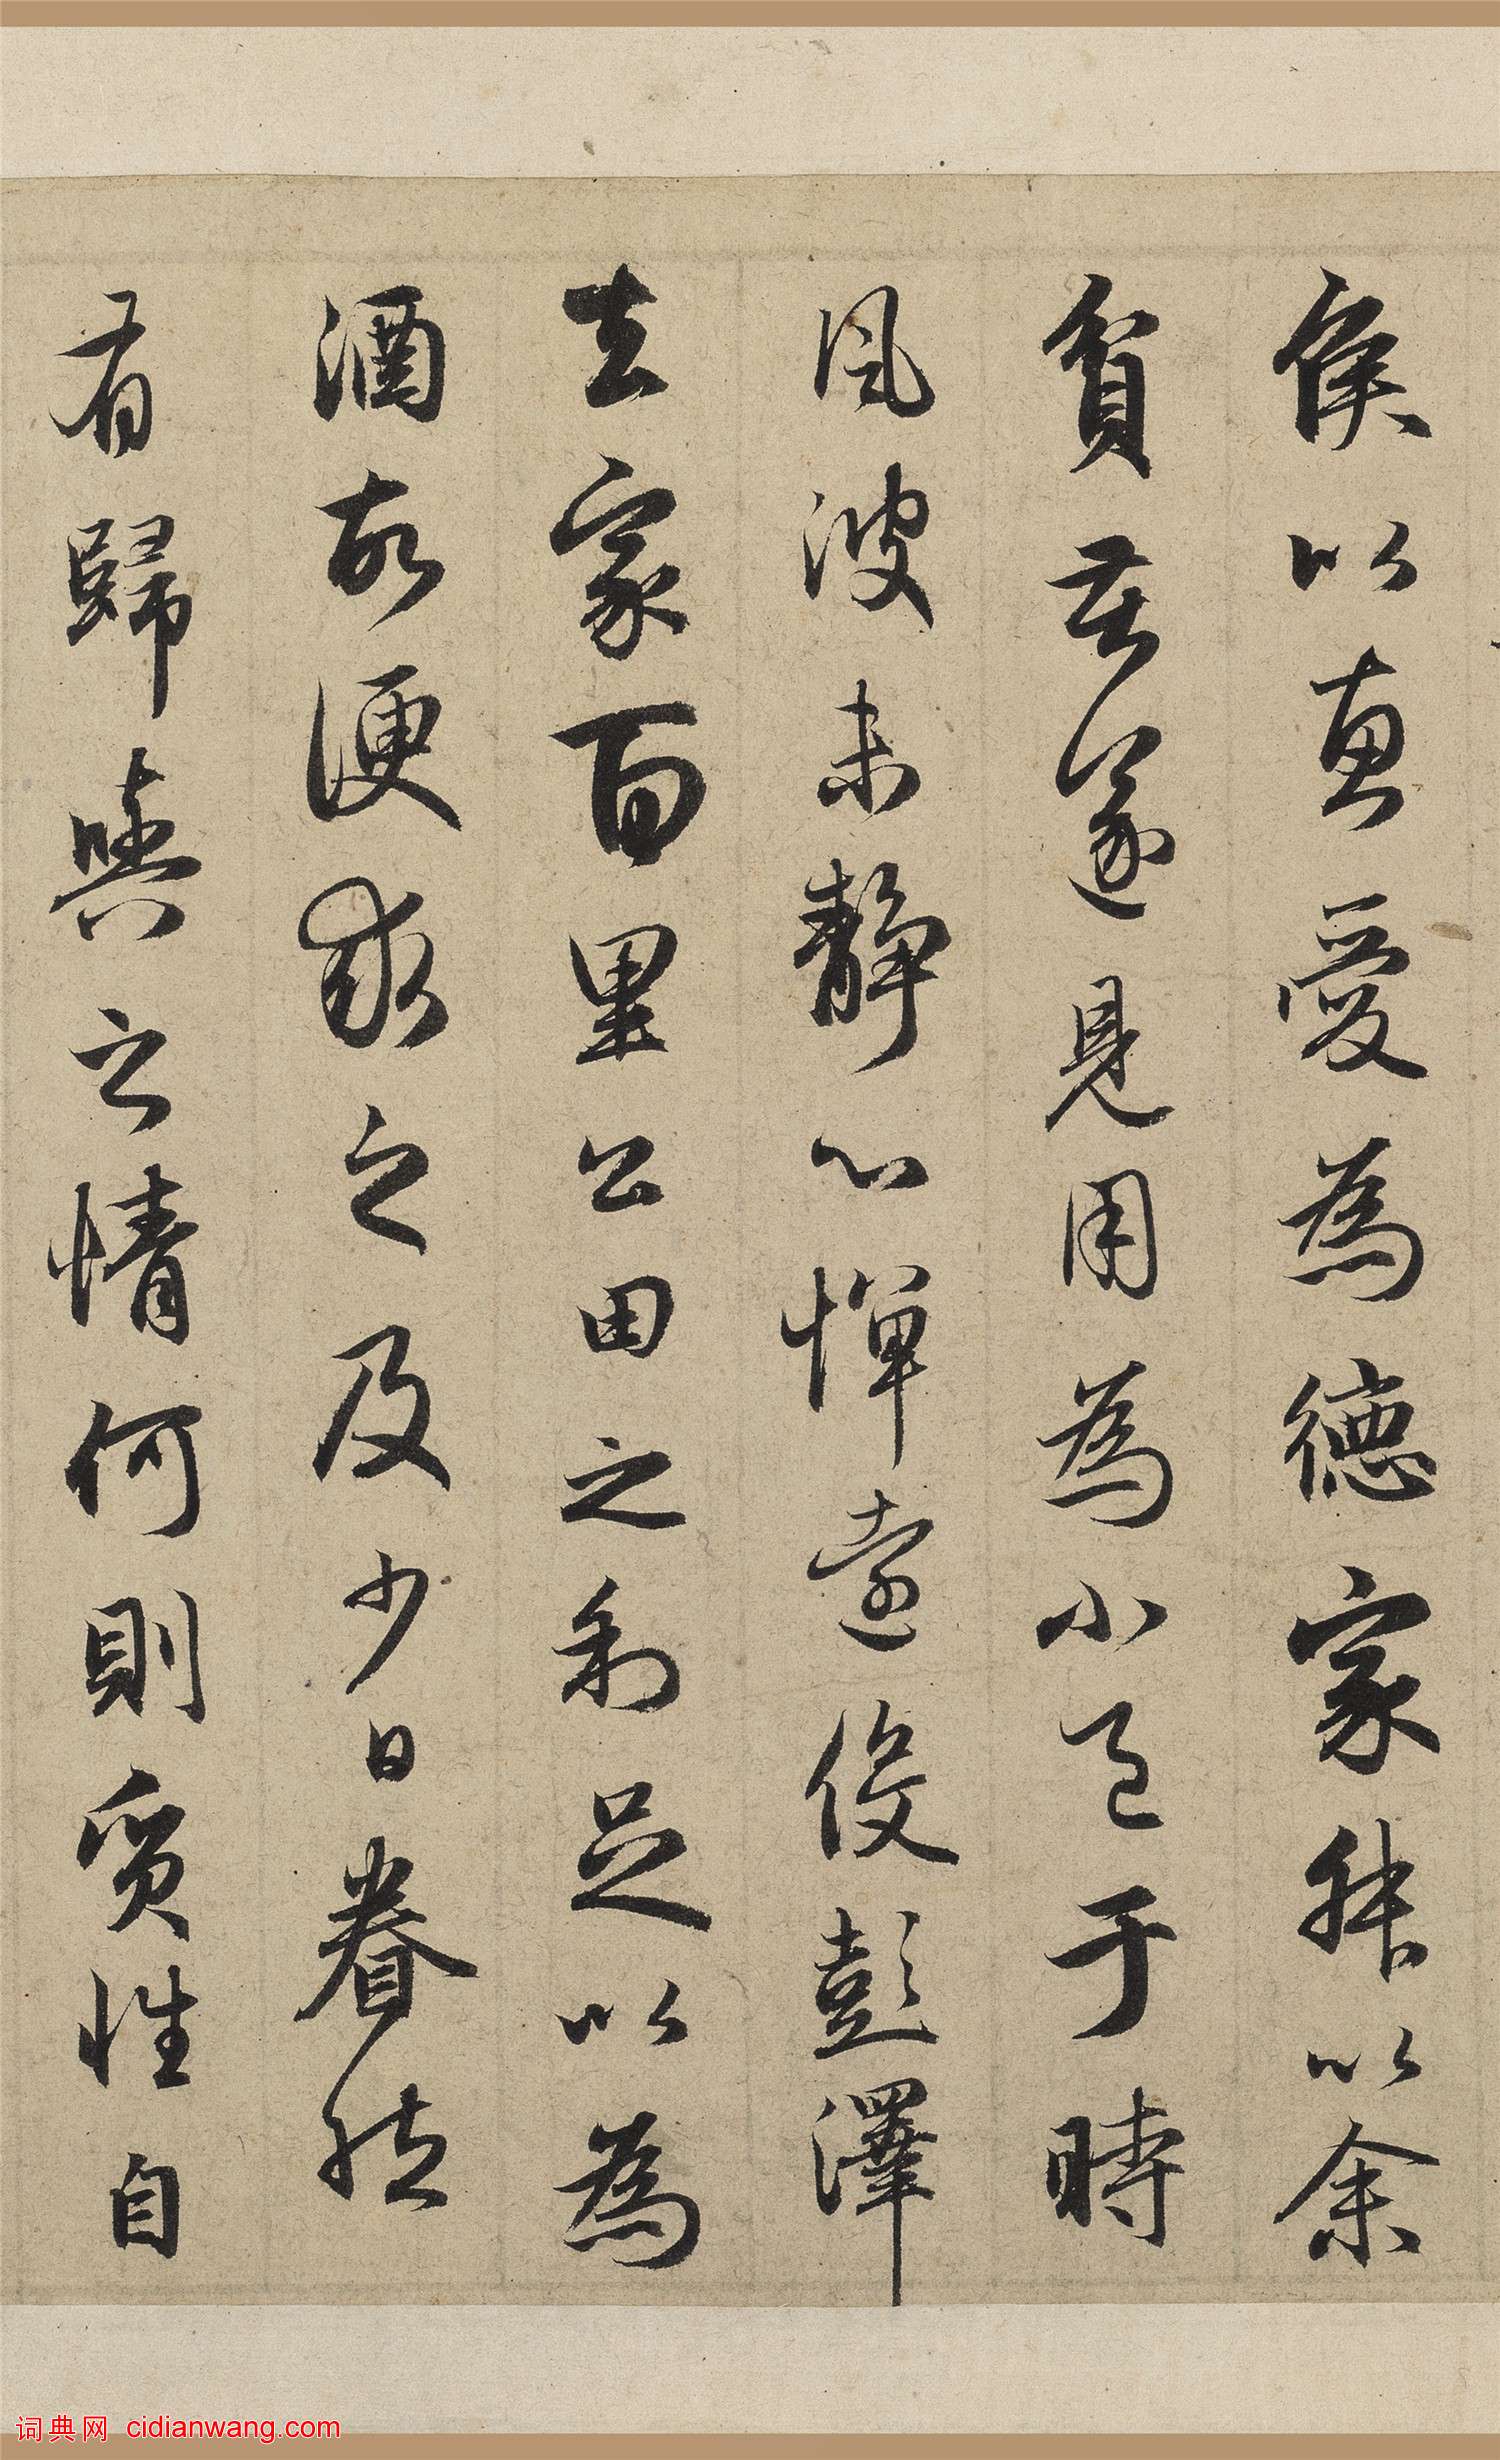 侯以惠愛為德家叔以余
貧苦遂見用為小邑于時
風波未静心憚遠役彭澤
去家百里公田之利足以為
酒故便求之及少日眷然
有歸與之情何則質性自
词典网 cidianwang.com